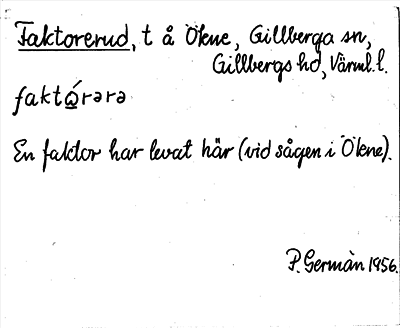 Faktorerud, t å Ökne, Gillberga sn,
Gillbergs hd, Värml. l.
faktá̱rərə
En faktor har levat här (vid sågen i Ökne).
P. Germàn 1956.